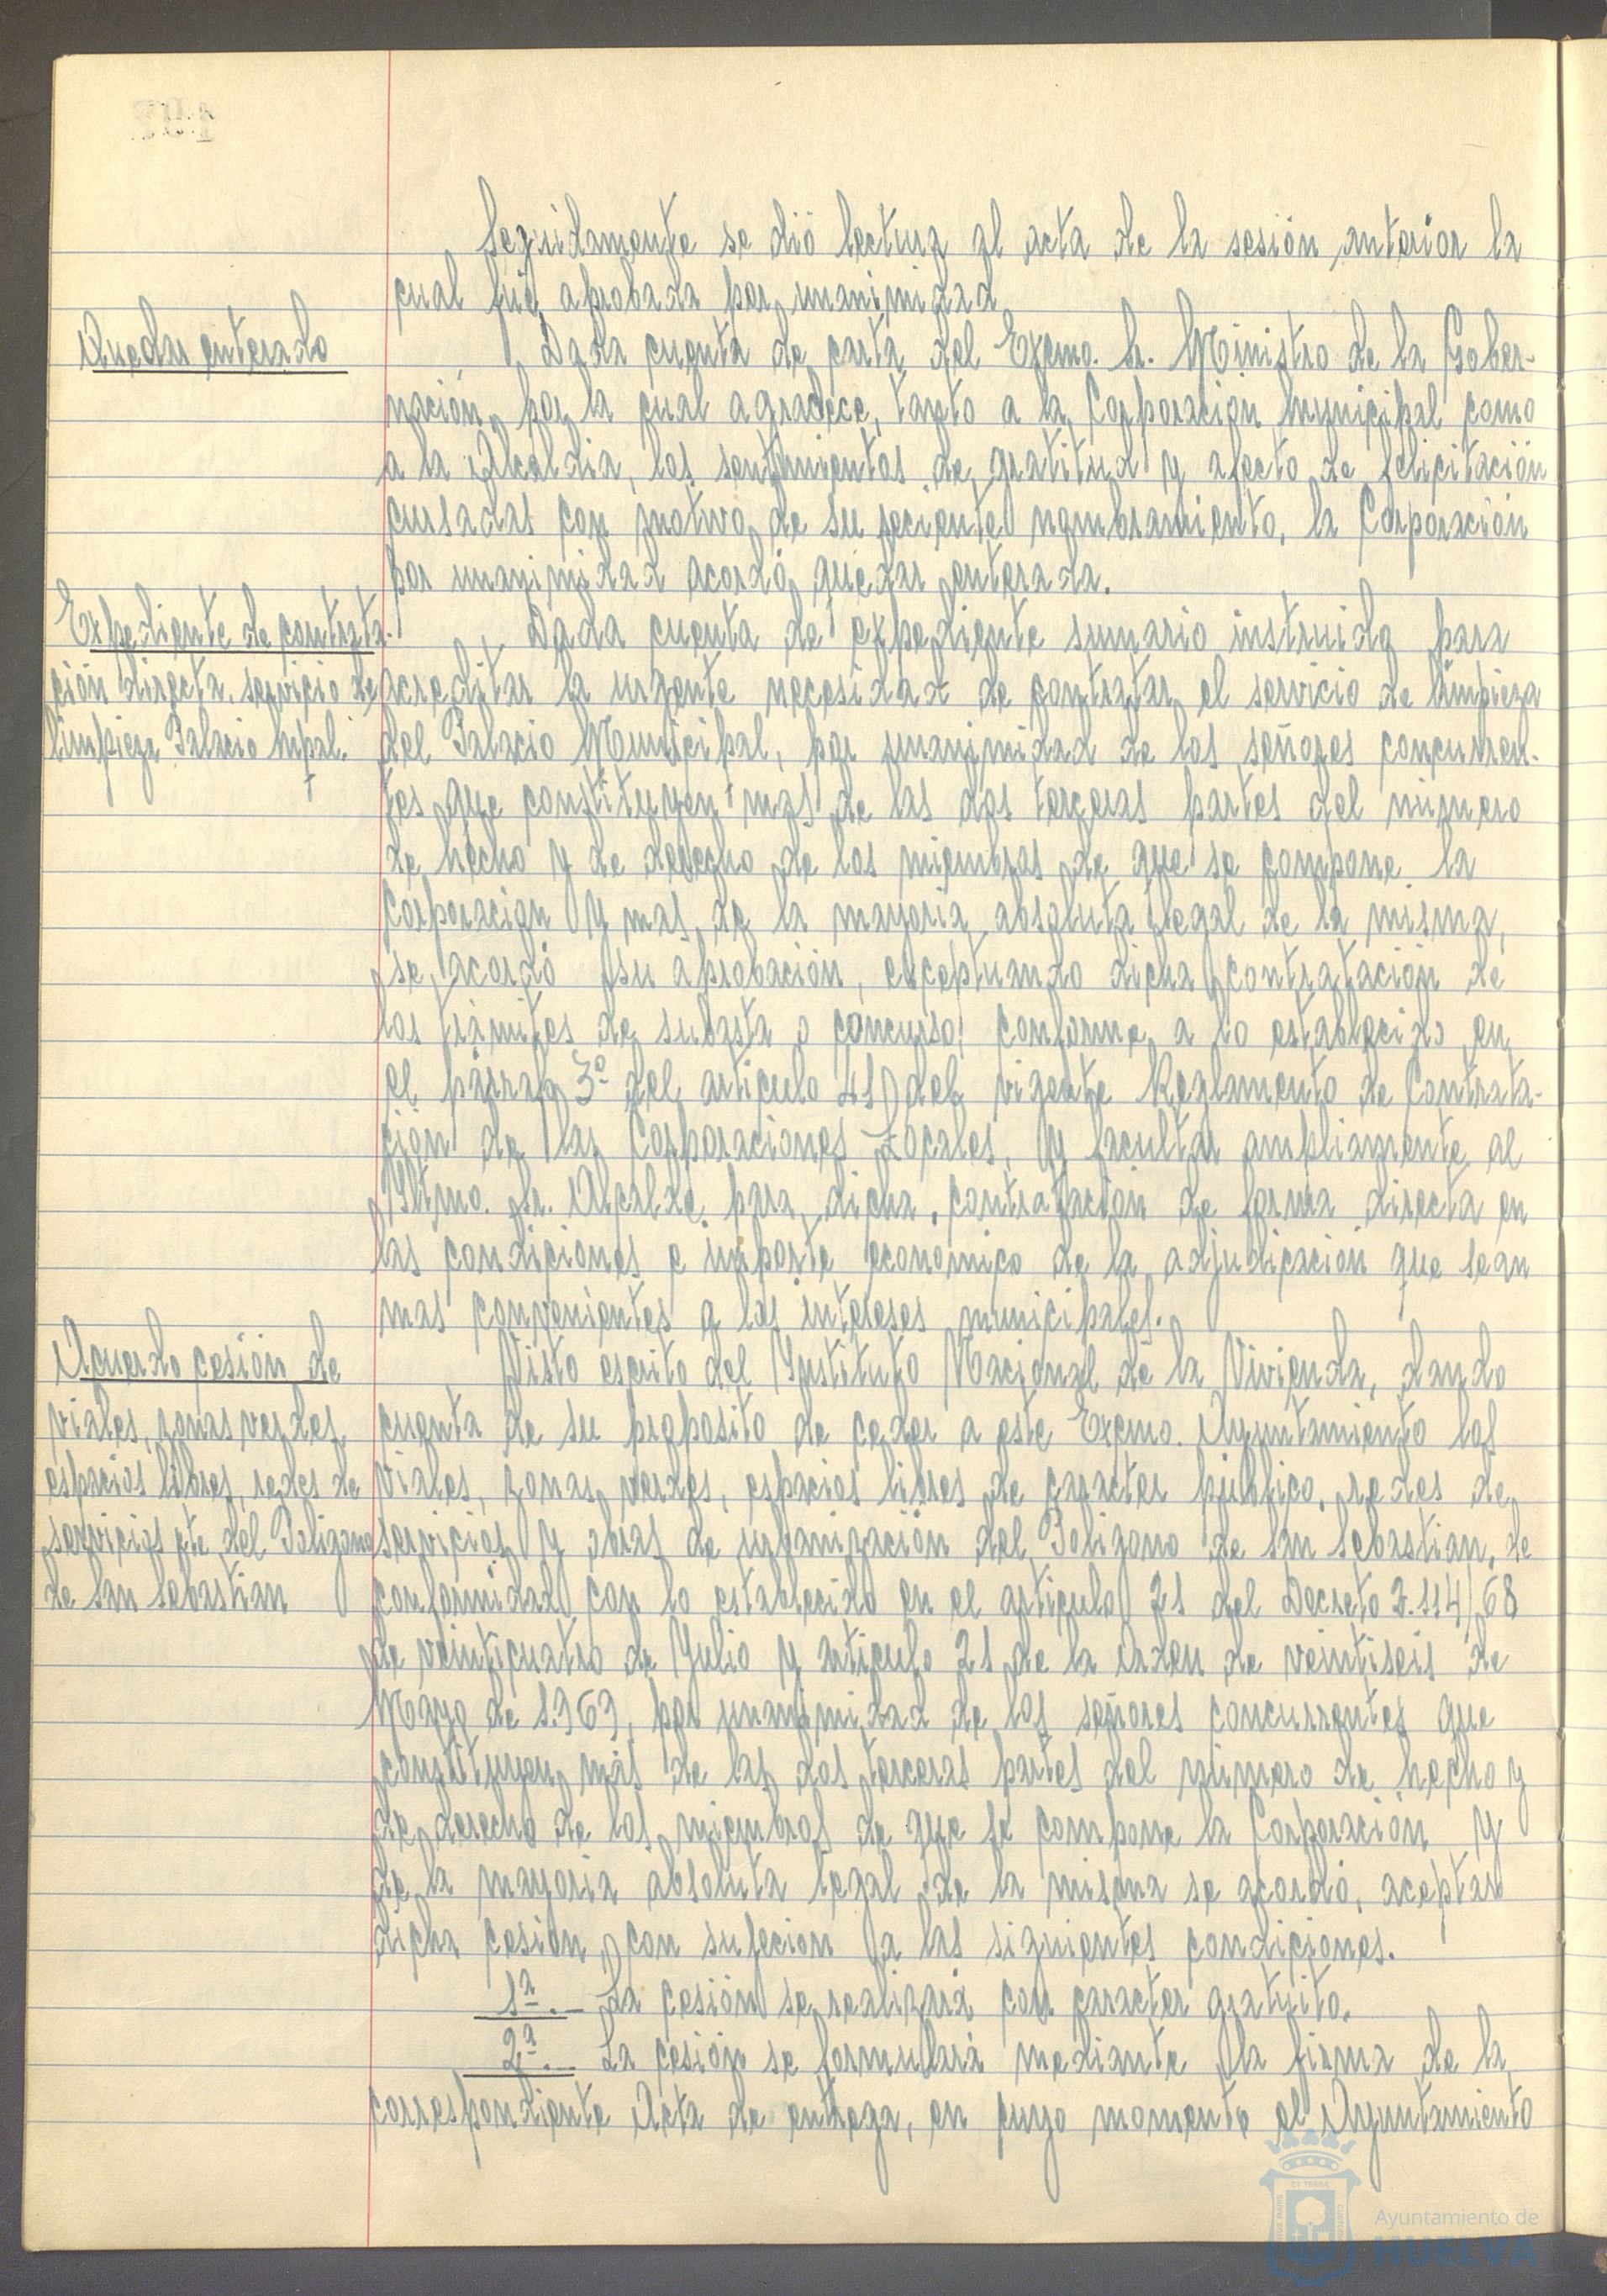 Seguidamente se dió lectura al acta de la sesión anterior la
cual fué aprobada por unanimidad
Quedar enterado
Dada cuenta de carta del Excmo. Sr. Ministro de la Gober-
nación, por la cual agradece, tanto a la Corporación Municipal como
a la Alcaldia, los sentimientos de gratitud y afecto de felicitación
cursadas con motivo de su reciente nombramiento, la Corporación
por unanimidad acordó quedar enterada.
Expediente de contrata-
ción directa, servicio de
limpieza Palacio Mpal.
Dada cuenta de expediente sumario instruido para
acreditar la urgente necesidad de contratar el servicio de limpieza
del Palacio Municipal, por unanimidad de los señores concurren-
tes que constituyen mas de las dos terceras partes del número
de hecho y de derecho de los miembros de que se compone la
Corporacion y mas de la mayoria absoluta legal de la misma,
se acordó su aprobación, exceptuando dicha contratación de
los trámites de subasta o concurso, conforme a lo establecido en
el párrafo 3º del articulo 41 del vigente Reglamento de Contrata-
ción de las Corporaciones Locales, y facultar ampliamente al
Iltmo. Sr. Alcalde para dicha contratación de forma directa en
las condiciones e importe economico de la adjudicación que sean
mas convenientes a los intereses municipales.
Acuerdo cesión de
viales, zonas verdes,
espacios libres, redes de
servicios etc del Poligono
de San Sebastian
Visto escrito del Instituto Nacional de la Vivienda, dando
cuenta de su proposito de ceder a este Excmo. Ayuntamiento los
viales, zonas verdes, espacios libres de caracter público, redes de
servicios y obras de urbanización del Poligono de San Sebastian, de
conformidad con lo establecido en el articulo 21 del Decreto 2.114/68
de veinticuatro de Julio y articulo 21 de la Orden de veintiseis de
Mayo de 1.969, por unanimidad de los señores concurrentes que
constituyen más de las dos terceras partes del número de hecho y
de derecho de los miembros de que se compone la Corporación y
de la mayoria absoluta legal de la misma se acordó, aceptar
dicha cesion, con sujecion a las siguientes condiciones.
1ª.- La cesión se realizará con caracter gratuito.
2ª.- La cesión se formulará mediante la firma de la
correspondiente Acta de entrega, en cuyo momento el Ayuntamiento
Ayuntamiento de
HUELVA